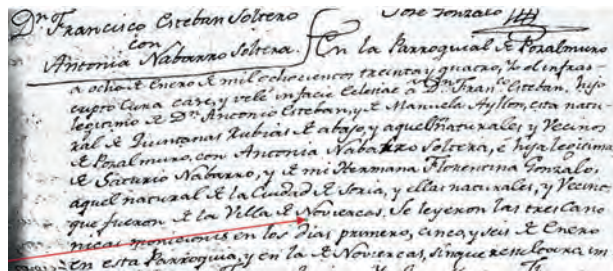 Dn Francisco Esteban Soltero
con
Antonia Nabarro Soltera.
José Gonzalo
En la Parroquial de Pozalmuro
a ocho de Enero de mil ochocientos treinta y quatro, Yo el infras
cripto Cura casé, y velé in facie Eclesiae a Dn Franco Esteban, hijo
legitimo de Dn Antonio Esteban, y de Manuela Ayllon, esta natu
ral de Quintanas Rubias de abajo, y aquel naturales y Vecinos
de Pozalmuro, con Antonia Nabarro Soltera, é hija legitima
de Saturio Nabarro, y de mi Hermana Florentina Gonzalo,
aquel natural de la Ciudad de Soria, y ellas naturales, y Vecino
que fueron de la Villa de Noviercas. Se leyeron las tres Cano
nicas moniciones en los dias primero, cinco, y seis de Enero
en esta Parroquia, y en la de Noviercas, sin que resultara im